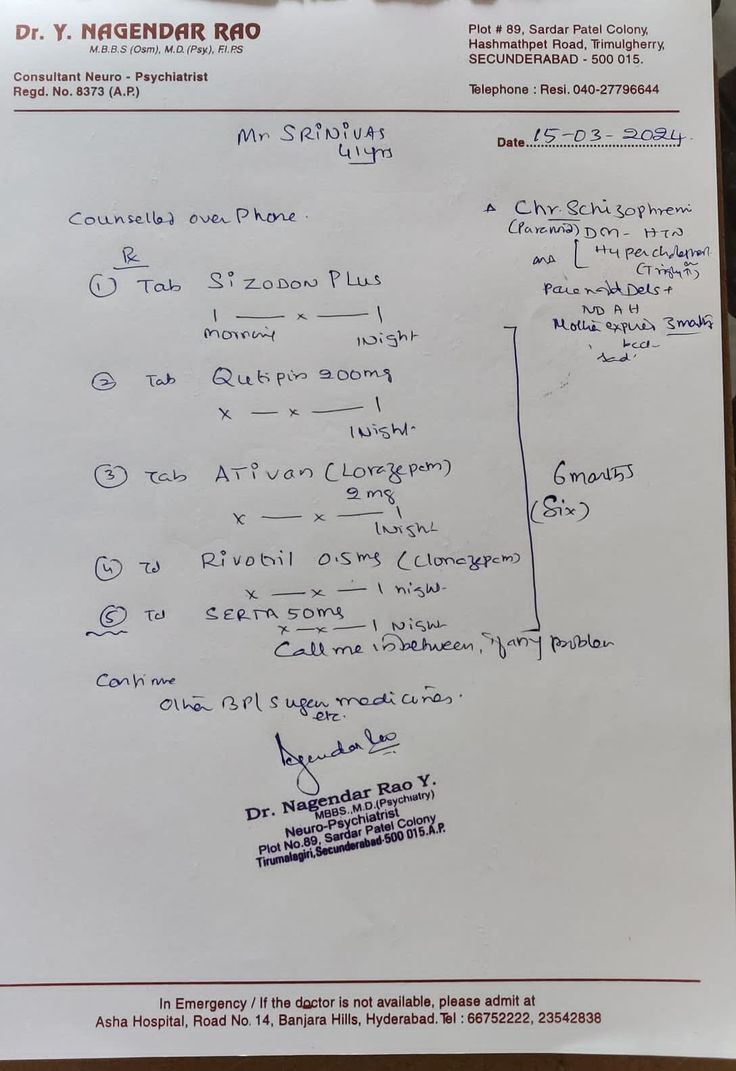 Dr. Y. NAGENDAR RAO
M.B.B.S (Osm), M.D. (Psy.), F.I.P.S
Consultant Neuro - Psychiatrist
Regd. No. 8373 (A.P.)
Plot # 89, Sardar Patel Colony,
Hashmathpet Road, Trimulgherry,
SECUNDERABAD - 500 015.
Telephone : Resi. 040-27796644
Mr SRINIVAS
41yrs
Date 15-03-2024
Counselled over Phone.
Δ Chr. Schizophreni
(Paranoid) DM - HTN
Hypercholesterol
Dels +
NDAH
Mother expired 3 months
Rx
① Tab SIZODON PLUS
1 — x — 1
morning 1 Night
② Tab Qutipin 200mg
x — x — 1
1 Night
③ Tab ATIVAN (Lorazepam)
2mg
x — x — 1
1 Night
④ Td Rivotril 0.5mg (Clonazepam)
x — x — 1 night
⑤ Td SERTA 50mg
x — x — 1 Night
6 months
(Six)
Call me inbetween, if any problem
Continue
Other BP/Sugar medicines.
etc.
Nagendar Rao
Dr. Nagendar Rao Y.
MBBS.,M.D.(Psychiatry)
Neuro-Psychiatrist
Plot No.89, Sardar Patel Colony
Tirumalagiri,Secunderabad-500 015.A.P.
In Emergency / If the doctor is not available, please admit at
Asha Hospital, Road No. 14, Banjara Hills, Hyderabad. Tel : 66752222, 23542838